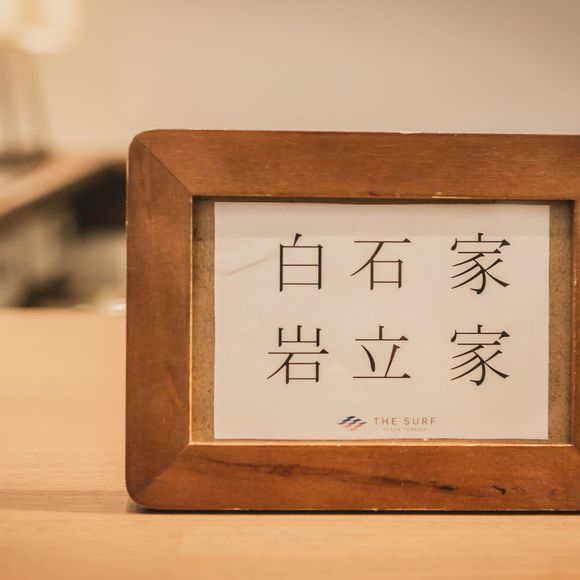 白石家
岩立家
THE SURF
OCEAN TERRACE